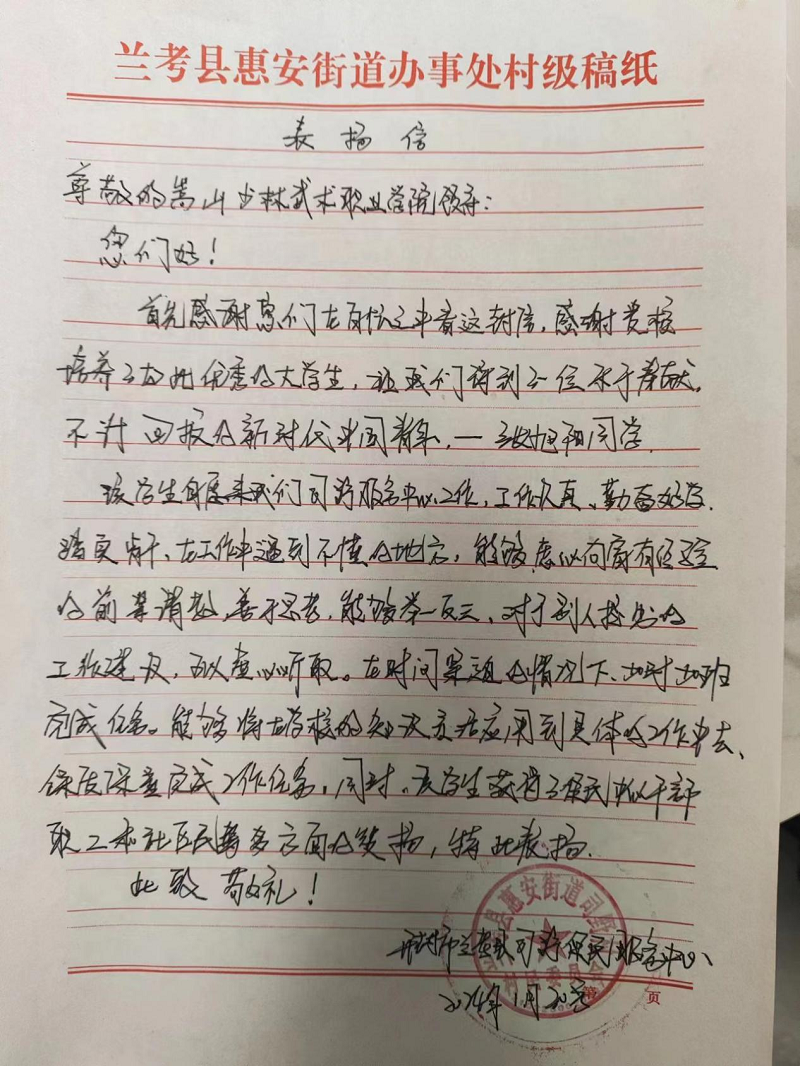 兰考县惠安街道办事处村级稿纸
表扬信
尊敬的嵩山少林武术职业学院领导：
您们好！
首先感谢您们在百忙之中看这封信，感谢贵校
培养了如此优秀的大学生，让我们得到一位乐于奉献、
不计回报的新时代中国青年，一旭阳同学。
该学生自愿来我们司野服务中心工作，工作认真、勤奋好学、
踏实肯干、在工作中遇到不懂的地方，能够虚心向富有经验
的前辈请教，善于思考，能够举一反三，对于别人提出的
工作建议，可以虚心听取。在时间紧迫的情况下、加时加班
完成任务。能够将在学校的知识灵活应用到具体的工作中去、
保质保量完成工作任务，同时，该学生获得了便民中心干部
职工和社区民等多方面的赞扬，特此表扬。
此致 敬礼！
开封市兰考县司野便民服务中心
2024年1月20号
县惠安街道司野
村民委员会
第 页